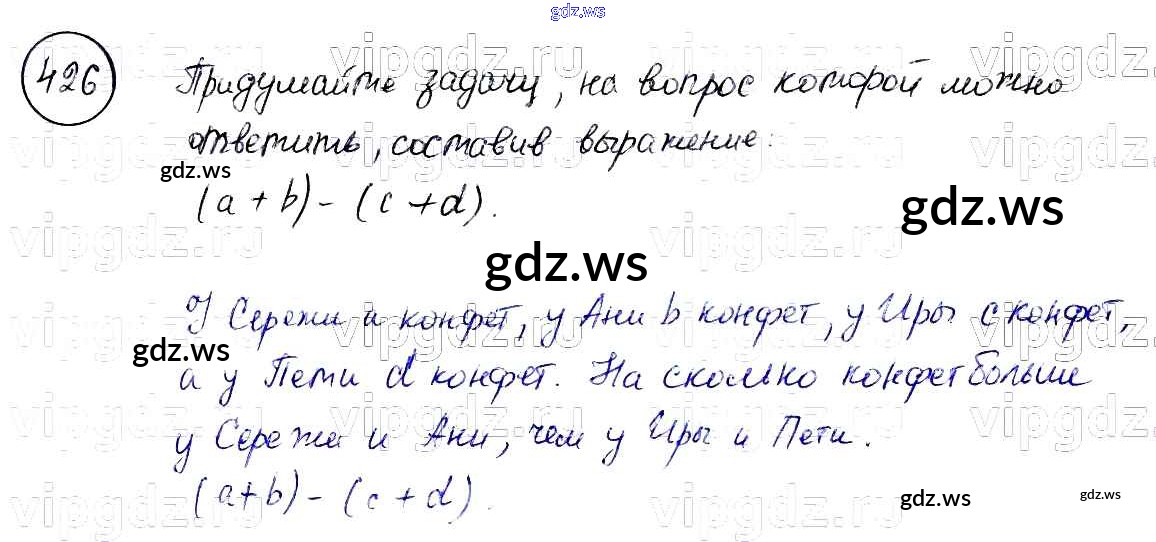 gdz.ws
426 Придумайте задачу, на вопрос которой можно
ответить, составив выражение:
gdz.ws
(a + b) - (c + d).
gdz.ws
gdz.ws
У Сережи a конфет, у Ани b конфет, у Иры c конфет,
gdz.ws
а у Пети d конфет. На сколько конфет больше
у Сережи и Ани, чем у Иры и Пети.
(a+b) - (c + d).
gdz.ws
gdz.ws
vipgdz.ru